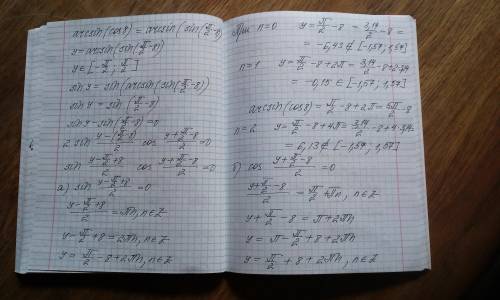 arcsin(cos8) = arcsin(sin(π/2-8))
y = arcsin(sin(π/2-8))
y ∈ [-π/2; π/2]
sin y = sin(arcsin(sin(π/2-8))
sin y = sin(π/2-8)
sin y - sin(π/2-8) = 0
2 sin (y-(π/2-8))/2 cos (y+π/2-8)/2 = 0
sin (y-π/2+8)/2 cos (y+π/2-8)/2 = 0
а) sin (y-π/2+8)/2 = 0
(y-π/2+8)/2 = πn, n∈Z
y-π/2+8 = 2πn, n∈Z
y = π/2-8+2πn, n∈Z
При n=0 y = π/2-8 = 3,14/2-8 =
= -6,43 ∉ [-1,57; 1,57]
n=1 y = π/2-8+2π = 3,14/2-8+2·3,14
= -0,15 ∈ [-1,57; 1,57]
arcsin(cos8) = π/2-8+2π = 5π/2-8
n=2 y = π/2-8+4π = 3,14/2-8+4·3,14=
= 6,13 ∉ [-1,57; 1,57]
б) cos (y+π/2-8)/2 = 0
(y+π/2-8)/2 = π/2+πn, n∈Z
y+π/2-8 = π+2πn
y = π-π/2+8+2πn
y = π/2+8+2πn, n∈Z